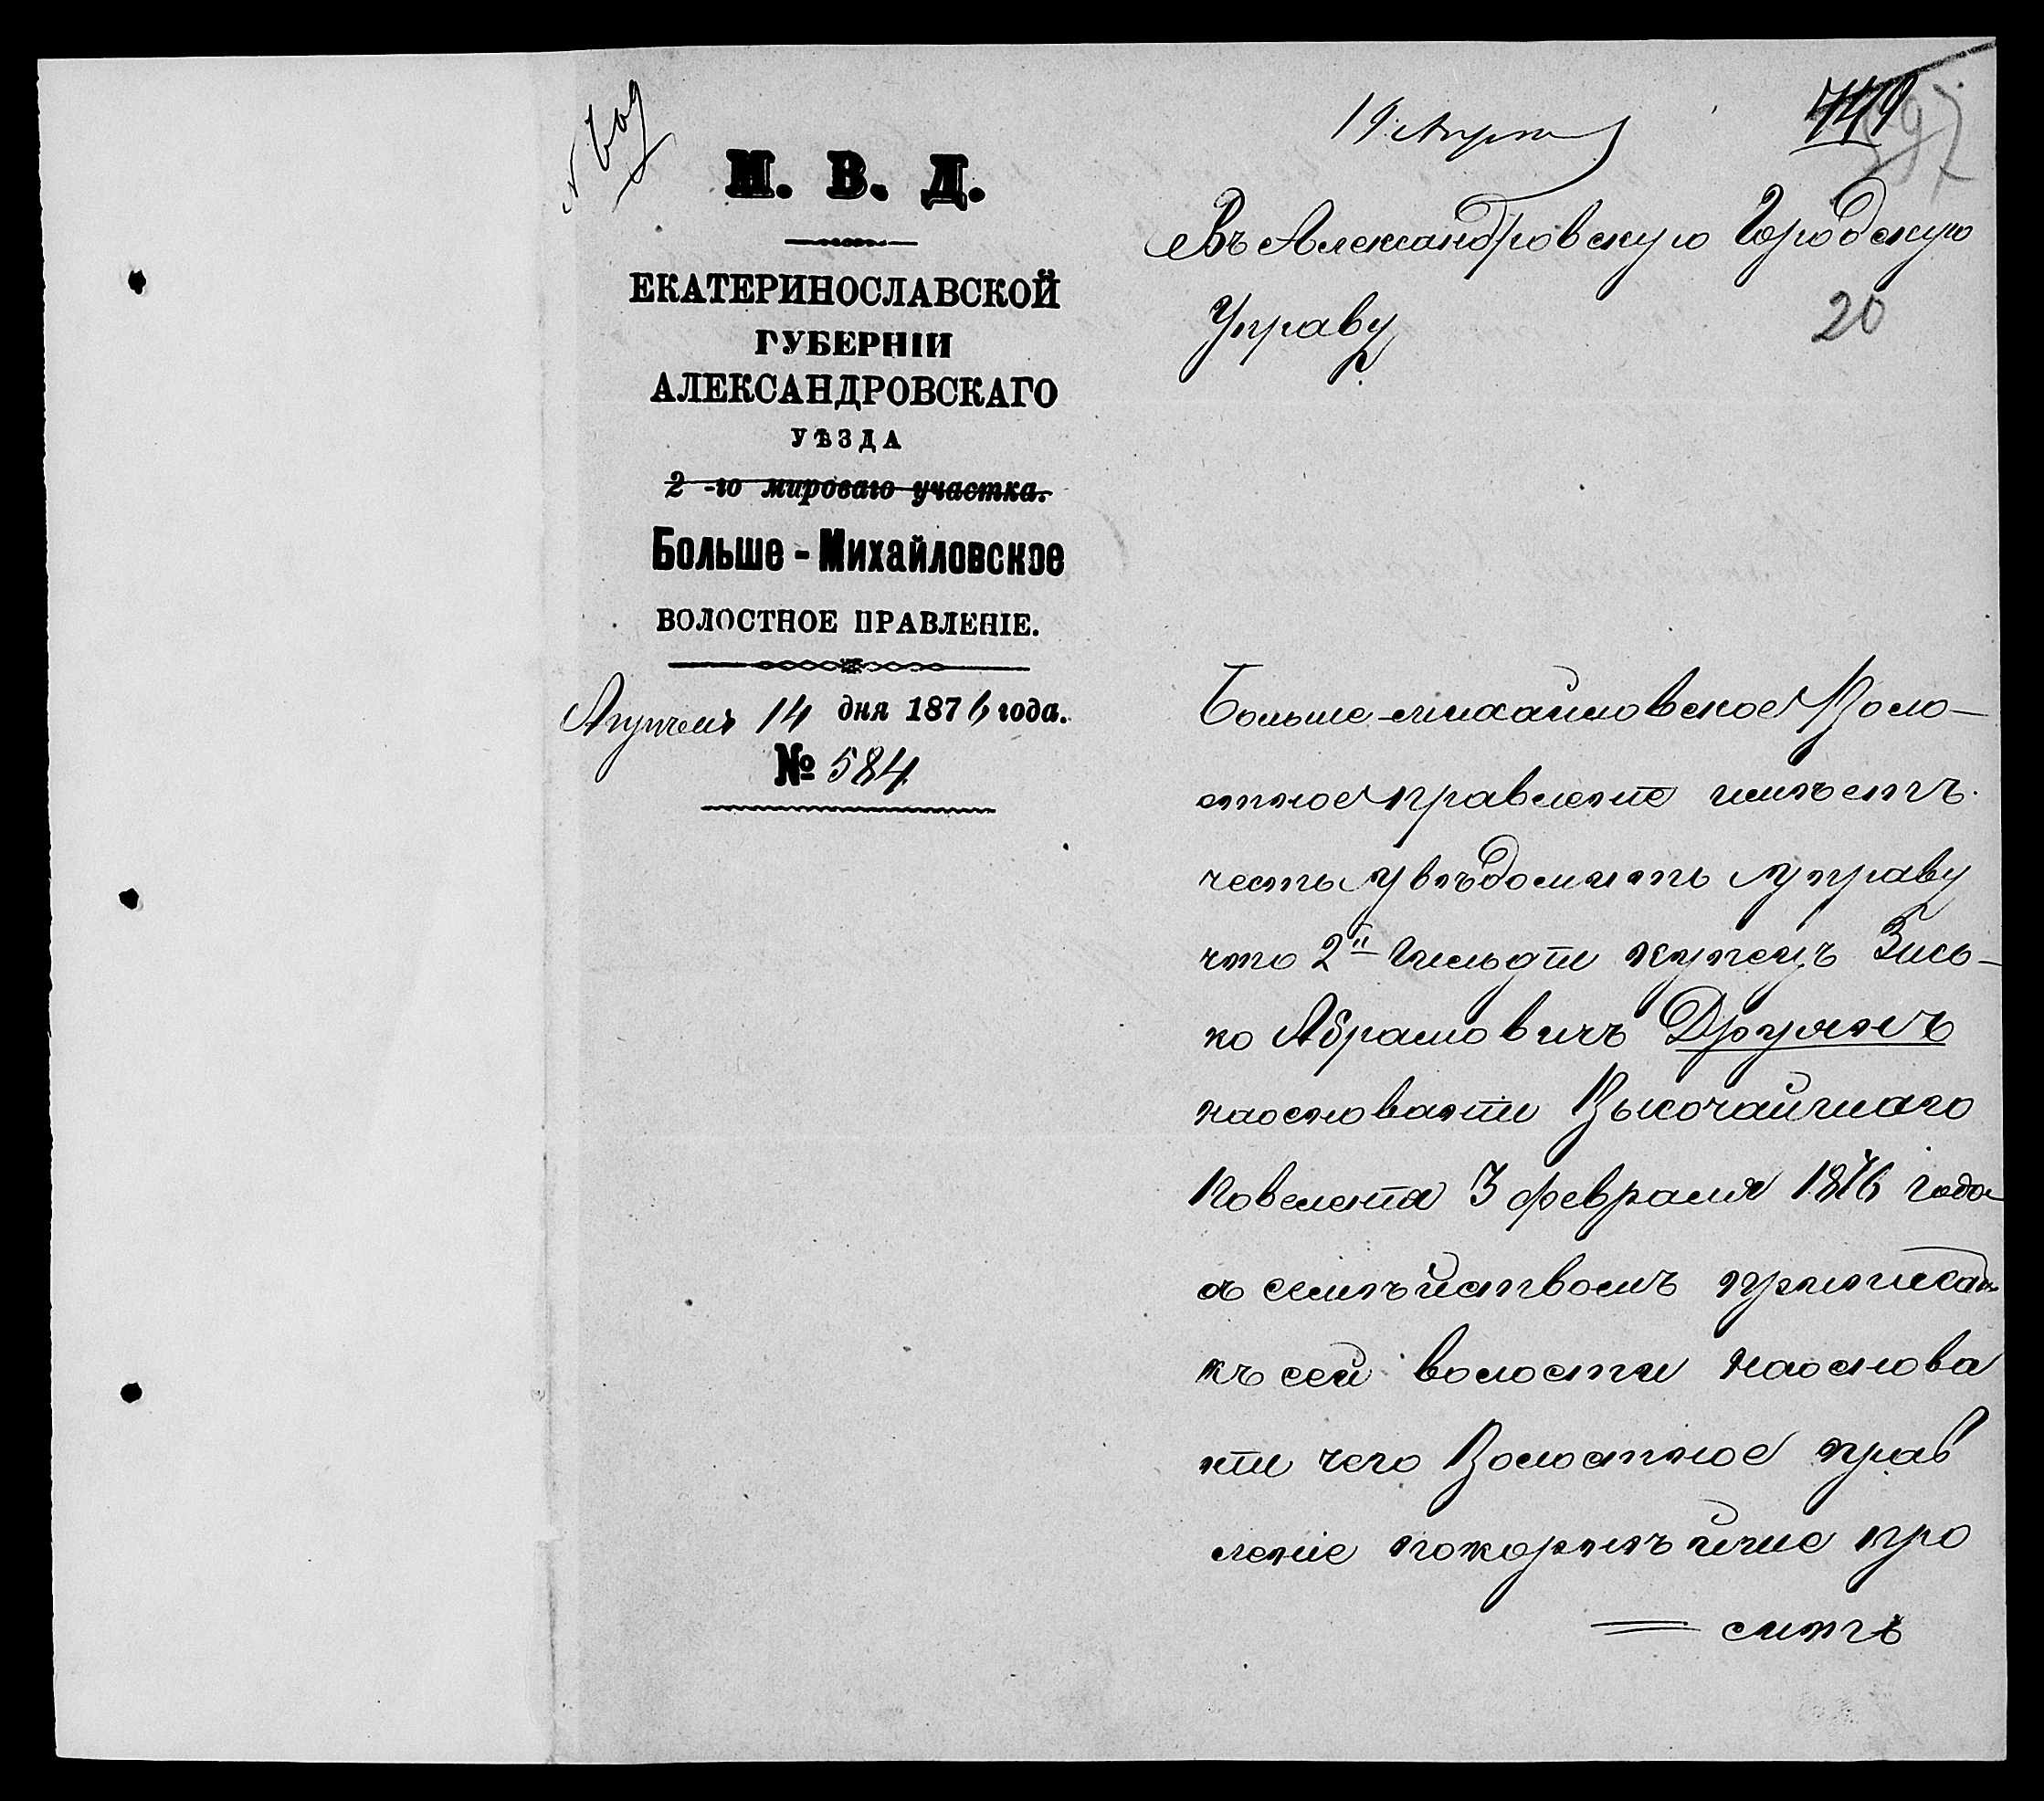 М. В. Д.
ЕКАТЕРИНОСЛАВСКОЙ
ГУБЕРНІИ
АЛЕКСАНДРОВСКАГО
УѢЗДА
2-го мироваго участка.
Больше-Михайловское
ВОЛОСТНОЕ ПРАВЛЕНІЕ.
Апрѣля 14 дня 1876 года.
№ 584
19 Апрѣля
Въ Александровскую Городскую
Управу
20
Больше-михайловское Воло-
стное правленіе имѣетъ
честь увѣдомить управу
что 2й гильдіи купецъ Зись-
ко Абрамовичъ Друянъ
наоснованіи Высочайшаго
Повеленія 3 февраля 1876 года
съ семѣйствомъ приписан
къ сей волости наоснова
ніи чего Волостное прав
леніе покорнѣйше про
ситъ